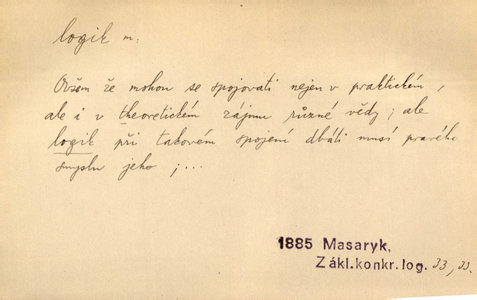 logik m.
Ovšem že mohou se spojovati nejen v praktickém,
ale i v theoretickém zájmu různé vědy; ale
logik při takovém spojení dbáti musí pravého
smyslu jeho ;...
1885 Masaryk,
Zákl.konkr.log. 23,